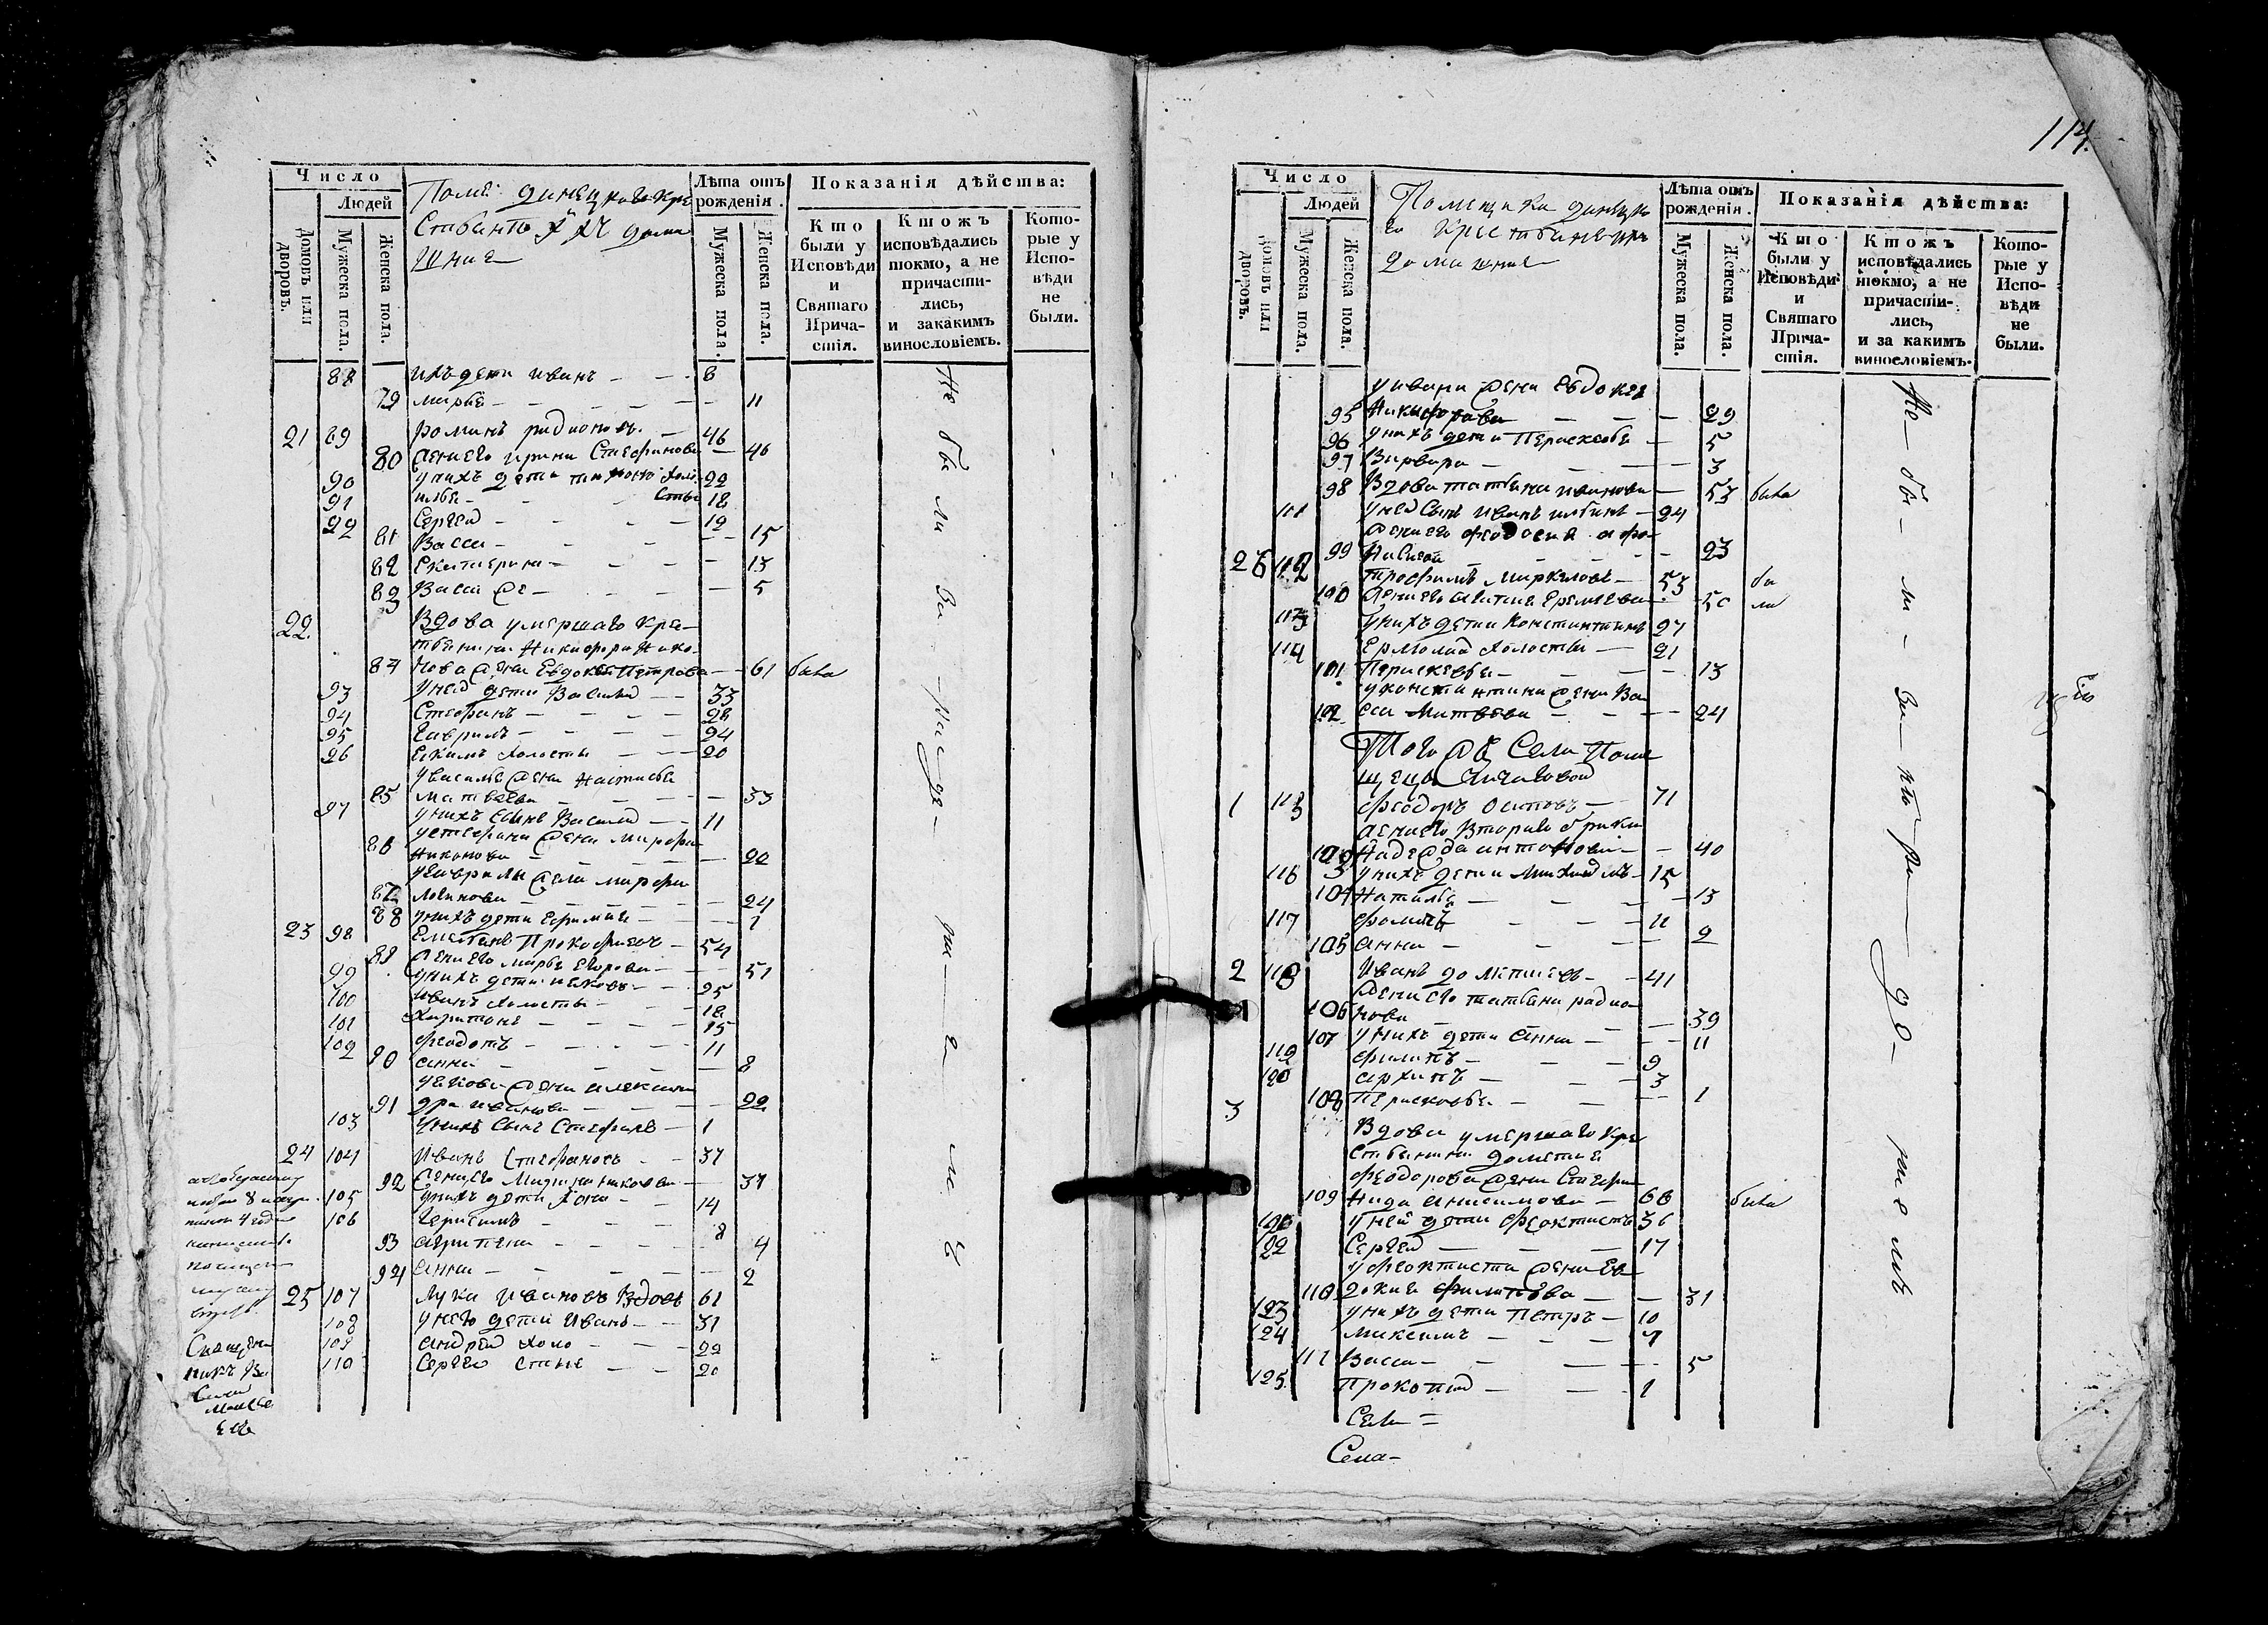 Число
Людей
Домовъ или дворовъ.
Мужеска пола.
Женска пола.
Поме динецково кре
стьянѣ и ихъ дома
шние
Лѣта отъ рождения.
Мужеска пола.
Женска пола.
Показанія дѣйства:
Кто были у Исповѣди и Святаго Прича-стія.
Ктожъ исповѣдались токмо, а не причасти-лись, и закакимъ винословіемъ.
Кото-рые у Испо-вѣди не были.
88 ихъ дети иванъ 8
79 марья 11
21 89 романъ радионовъ 46
80 жена его ирина Стефанова 46
90 у нихъ дети 22
91 илья 18
92 Сергей 12
81 Васса 15
82 Екатерина 13
83 5
22 Вдова умершаго кре-
стьянина Никифора Нико-
84 нова жена Евдокия Петрова 61 была
93 у ней дети Василий 33
94 Стефанъ 28
95 Гаврилъ 24
96 Екимъ холосты 20
у василья жена настасья
85 матвеева 33
97 у нихъ сынъ Василий 11
у стефана жена марфа
86 Никонова 22
у гаврилы жена марфа
87 логинова 24
88 у нихъ дети 1
23 98 Емельянъ Прокофиевъ 54
89 жена его марья Егорова 51
99 у нихъ дети иаковъ 25
100 иванъ холосты 18
101 харитонъ 15
102 феодотъ 11
90 анна 8
у якова жена алексан
91 дра иванова 22
103 у нихъ сынъ Стефанъ 1
24 104 Иванъ Стефановъ 37
92 жена его 37
105 у нихъ дети 14
106 герасимъ 8
93 агрипена 4
94 анна 2
25 107 лука ивановъ вдовъ 61
108 у него дети иванъ 31
109 андрей холо 22
110 Сергей стые 20
Священ
никъ Ва
силий
Матве
евъ
Не бы ли за
114.
Число
Людей
Домовъ или дворовъ.
Мужеска пола.
Женска пола.
Помещика динецко
го крестьяне ихъ
домашние
Лѣта отъ рожденія.
Мужеска пола.
Женска пола.
Показанія дѣйства:
Кто были у Исповѣди и Святаго Прича-стія.
Ктожъ исповѣдались токмо, а не причасти-лись, и за какимъ винословіемъ.
Кото-рые у Испо-вѣди не были.
у ивана жена Евдокия
95 Никифорова 29
96 у нихъ дети Парасковья 5
97 Варвара 3
98 Вдова татьяна иванова 53 была
111 у ней сынъ иванъ ильинъ 24
жена его феодосия афа
99 насиева 23
26 112 трофимъ маркеловъ 53 бы
100 жена его Еремеева 50 ли
113 у нихъ дети константинъ 27
114 Ермолай холосты 21
101 Параскевья 13
у константина жена Ва
102 сса матвеева 24
Того же Села Поме
щицы
1 115 феодоръ осиповъ 71
жена его второго брака
103 Надежда антонова 40
116 у нихъ дети михаилъ 15
104 Наталья 13
117 фома 11
105 анна 9
2 118 Иванъ дометиевъ 41
жена его татьяна радио
106 нова 39
107 у нихъ дети анна 11
119 филипъ 9
120 архипъ 3
108 Парасковья 1
3 Вдова умершаго кре
стьянина дометия
феодорова жена Стефа
109 нида анисимова 66 была
121 у ней дети феоктистъ 36
122 Сергей 17
у феоктиста жена Ев
110 докия филипова 31
123 у нихъ дети петръ 10
124 максимъ 7
111 Васса 5
125 Прокопий 1
Села =
Села-
Не бы ли за